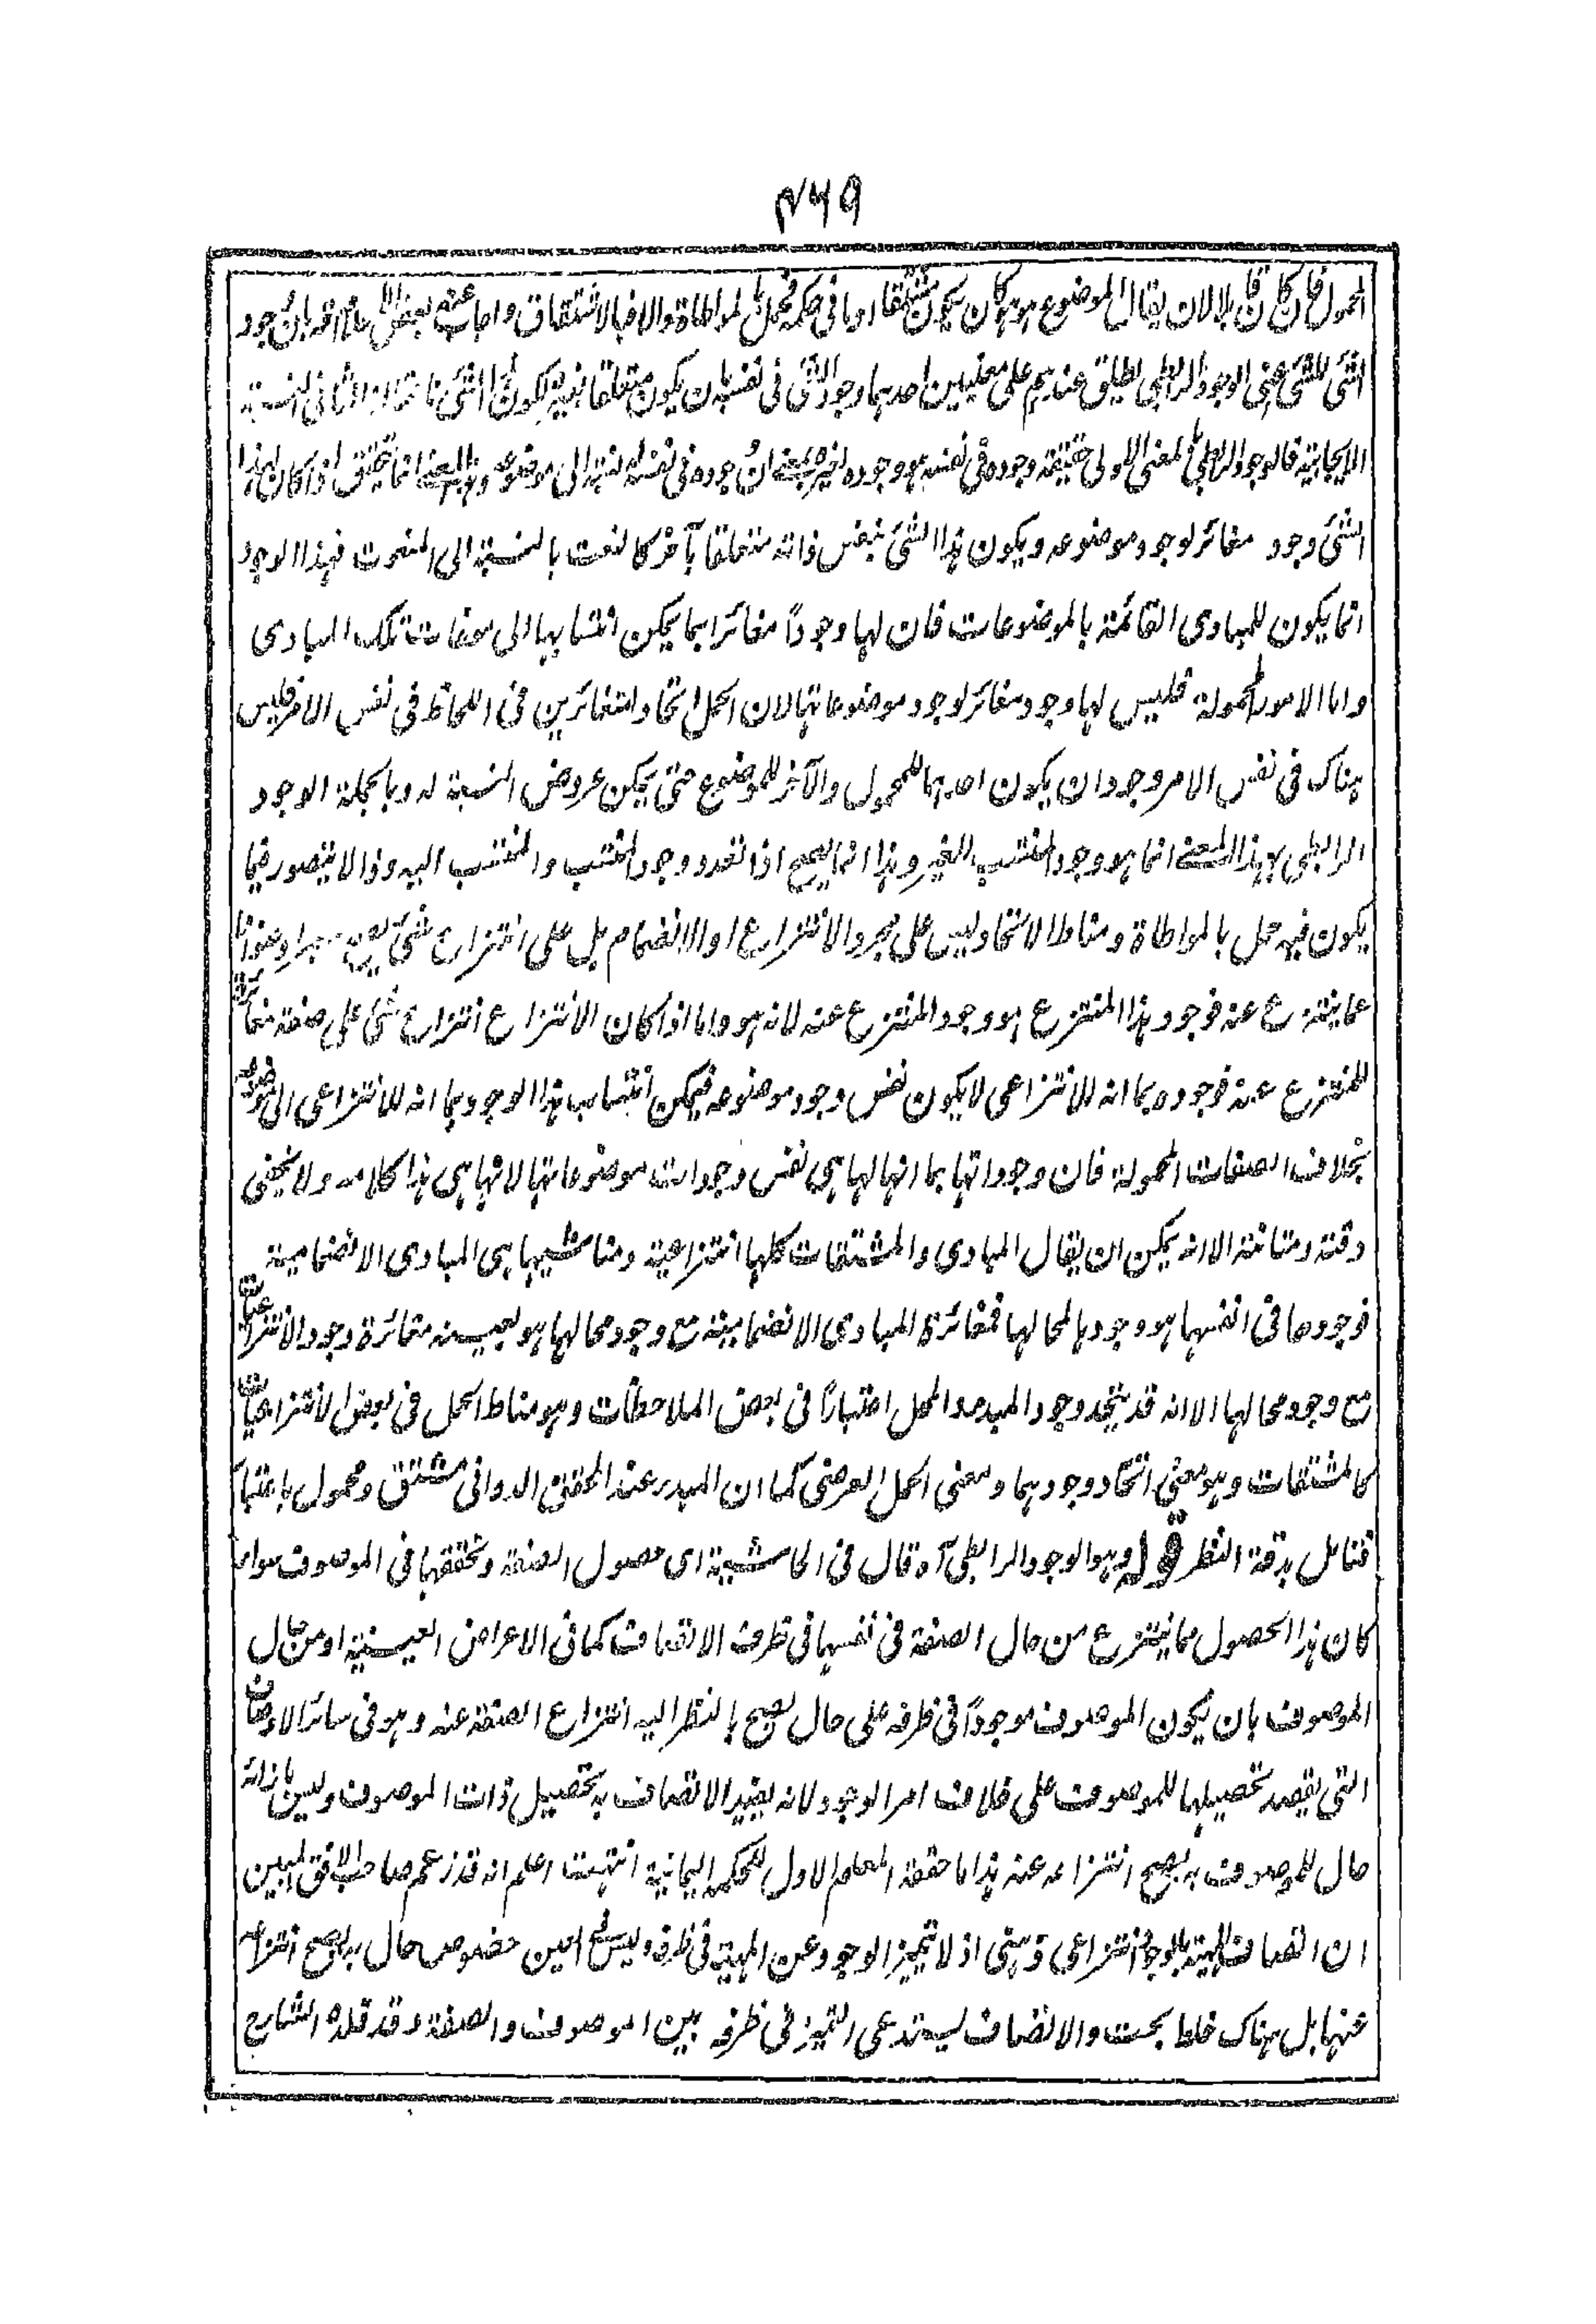 ۴۶۹
المحمول فان كان قابلا لان يقال الموضوع هو هو كان يكون مشتقا او ما فى حكمه فحمل بالمواطاة والا فبالاشتقاق واجاب عنه بعض بان وجود
الشئ للشئ اعنى الوجود الرابطى يطلق عندهم على معنيين احدهما وجود الشئ فى نفسه بان يكون متعلقا بغيره الثانى النسبة
الايجابية فالوجود الرابطى بالمعنى الاولى حقيقة وجوده فى نفسه هو وجوده لغيره بمعنى ان وجوده فى نفسه له نسبة الى موضوعه وبهذا المعنى انما يتحقق اذا كان لهذا
الشئ وجود مغائر لوجود موضوعه ويكون هذا الشئ بنفس ذاته متعلقا بآخر كالنعت بالنسبة الى المنعوت فهذا الوجود
انما يكون للمبادى القائمة بالموضوعات فان لها وجوداً مغائرا بما يمكن انتسابها الى موضوعات تلك المبادى
واما الامور المحمولة فليس لها وجود مغائر لوجود موضوعاتها لان الحمل اتحاد المتغائرين فى اللحاظ فى نفس الامر فليس
هناك فى نفس الامر وجودان يكون احدهما للمحمول والآخر للموضوع حتى يمكن عروض النسبة له وبالجملة الوجود
الرابطى بهذا المعنى انما هو وجود المنتسب للغير وهذا انما يصح اذا تعدد وجود المنتسب والمنتسب اليه وذا لا يتصور فيما
يكون فيه حمل بالمواطاة ومناط الاتحاد ليس على مجرد الانتزاع او الانضمام بل على انتزاع شئ وعنوانا
عما ينتزع عنه فوجود هذا المنتزع هو وجود المنتزع عنه لانه هو واما اذا كان الانتزاع انتزاع شئ على صفة مغائرة
للمنتزع عنه فوجوده بما انه للانتزاعى لا يكون نفس وجود موضوعه فيمكن انتساب هذا الوجود بما انه للانتزاعى الى موضوعه
بخلاف الصفات المحمولة فان وجوداتها بما انها لها هى نفس وجودات موضوعاتها لانها هى هذا كلامه ولا يخفى
دقته ومتانته الا انه يمكن ان يقال المبادى والمشتقات كلها انتزاعية ومناشيها هى المبادى الانضمامية
فوجودها فى انفسها هو وجودها لمحالها فمغائرة المبادى الانضمامية مع وجود محالها هو بعينه مغائرة وجود الانتزاعيات
مع وجود محالها الا انه قد يتحد وجود المبدء والمحل اعتباراً فى بعض الملاحظات وهو مناط الحمل فى بعض الانتزاعيات
كالمشتقات وهو معنى اتحاد وجودهما ومعنى الحمل العرضى كما ان المبدء عند المحقق الدوانى مشتق ومحمول باعتبار
فتامل بدقة النظر قوله وهو الوجود الرابطى آه قال فى الحاشية اى حصول الصفة وتحققها فى الموصوف سواء
كان هذا الحصول مما ينتزع من حال الصفة فى نفسها فى ظرف الاتصاف كما فى الاعراض العينية او من حال
الموصوف بان يكون الموصوف موجوداً فى ظرفه على حال يصح بالنظر اليه انتزاع الصفة عنه وهو فى سائر الاوصاف
التى يقصد تحصيلها للموصوف على خلاف امر الوجود لانه يفيد الاتصاف به تحصيل ذات الموصوف وليس بازائه
حال للموصوف به يصح انتزاعه عنه هذا ما حققه المعلم الاول للحكمة اليمانية انتهت اعلم انه قد زعم صاحب الافق المبين
ان اتصاف المهية بالوجود انتزاعى ذهنى اذ لا يتميز الوجود عن المهية فى ظرف وليس فى العين خصوص حال به يصح انتزاعه
عنها بل هناك خلط بحت والاتصاف يستدعى التميز فى ظرفه بين الموصوف والصفة وقد قلده الشارح